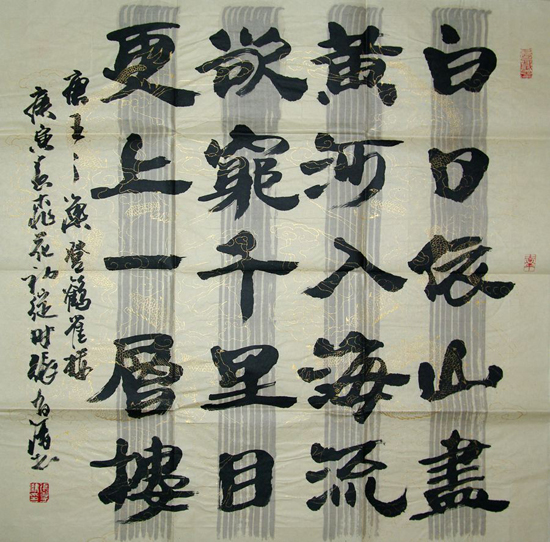 白日依山盡
黄河入海流
欲窮千里目
更上一層樓
唐王之渙登鸛雀樓
庚寅春桃花初綻时張